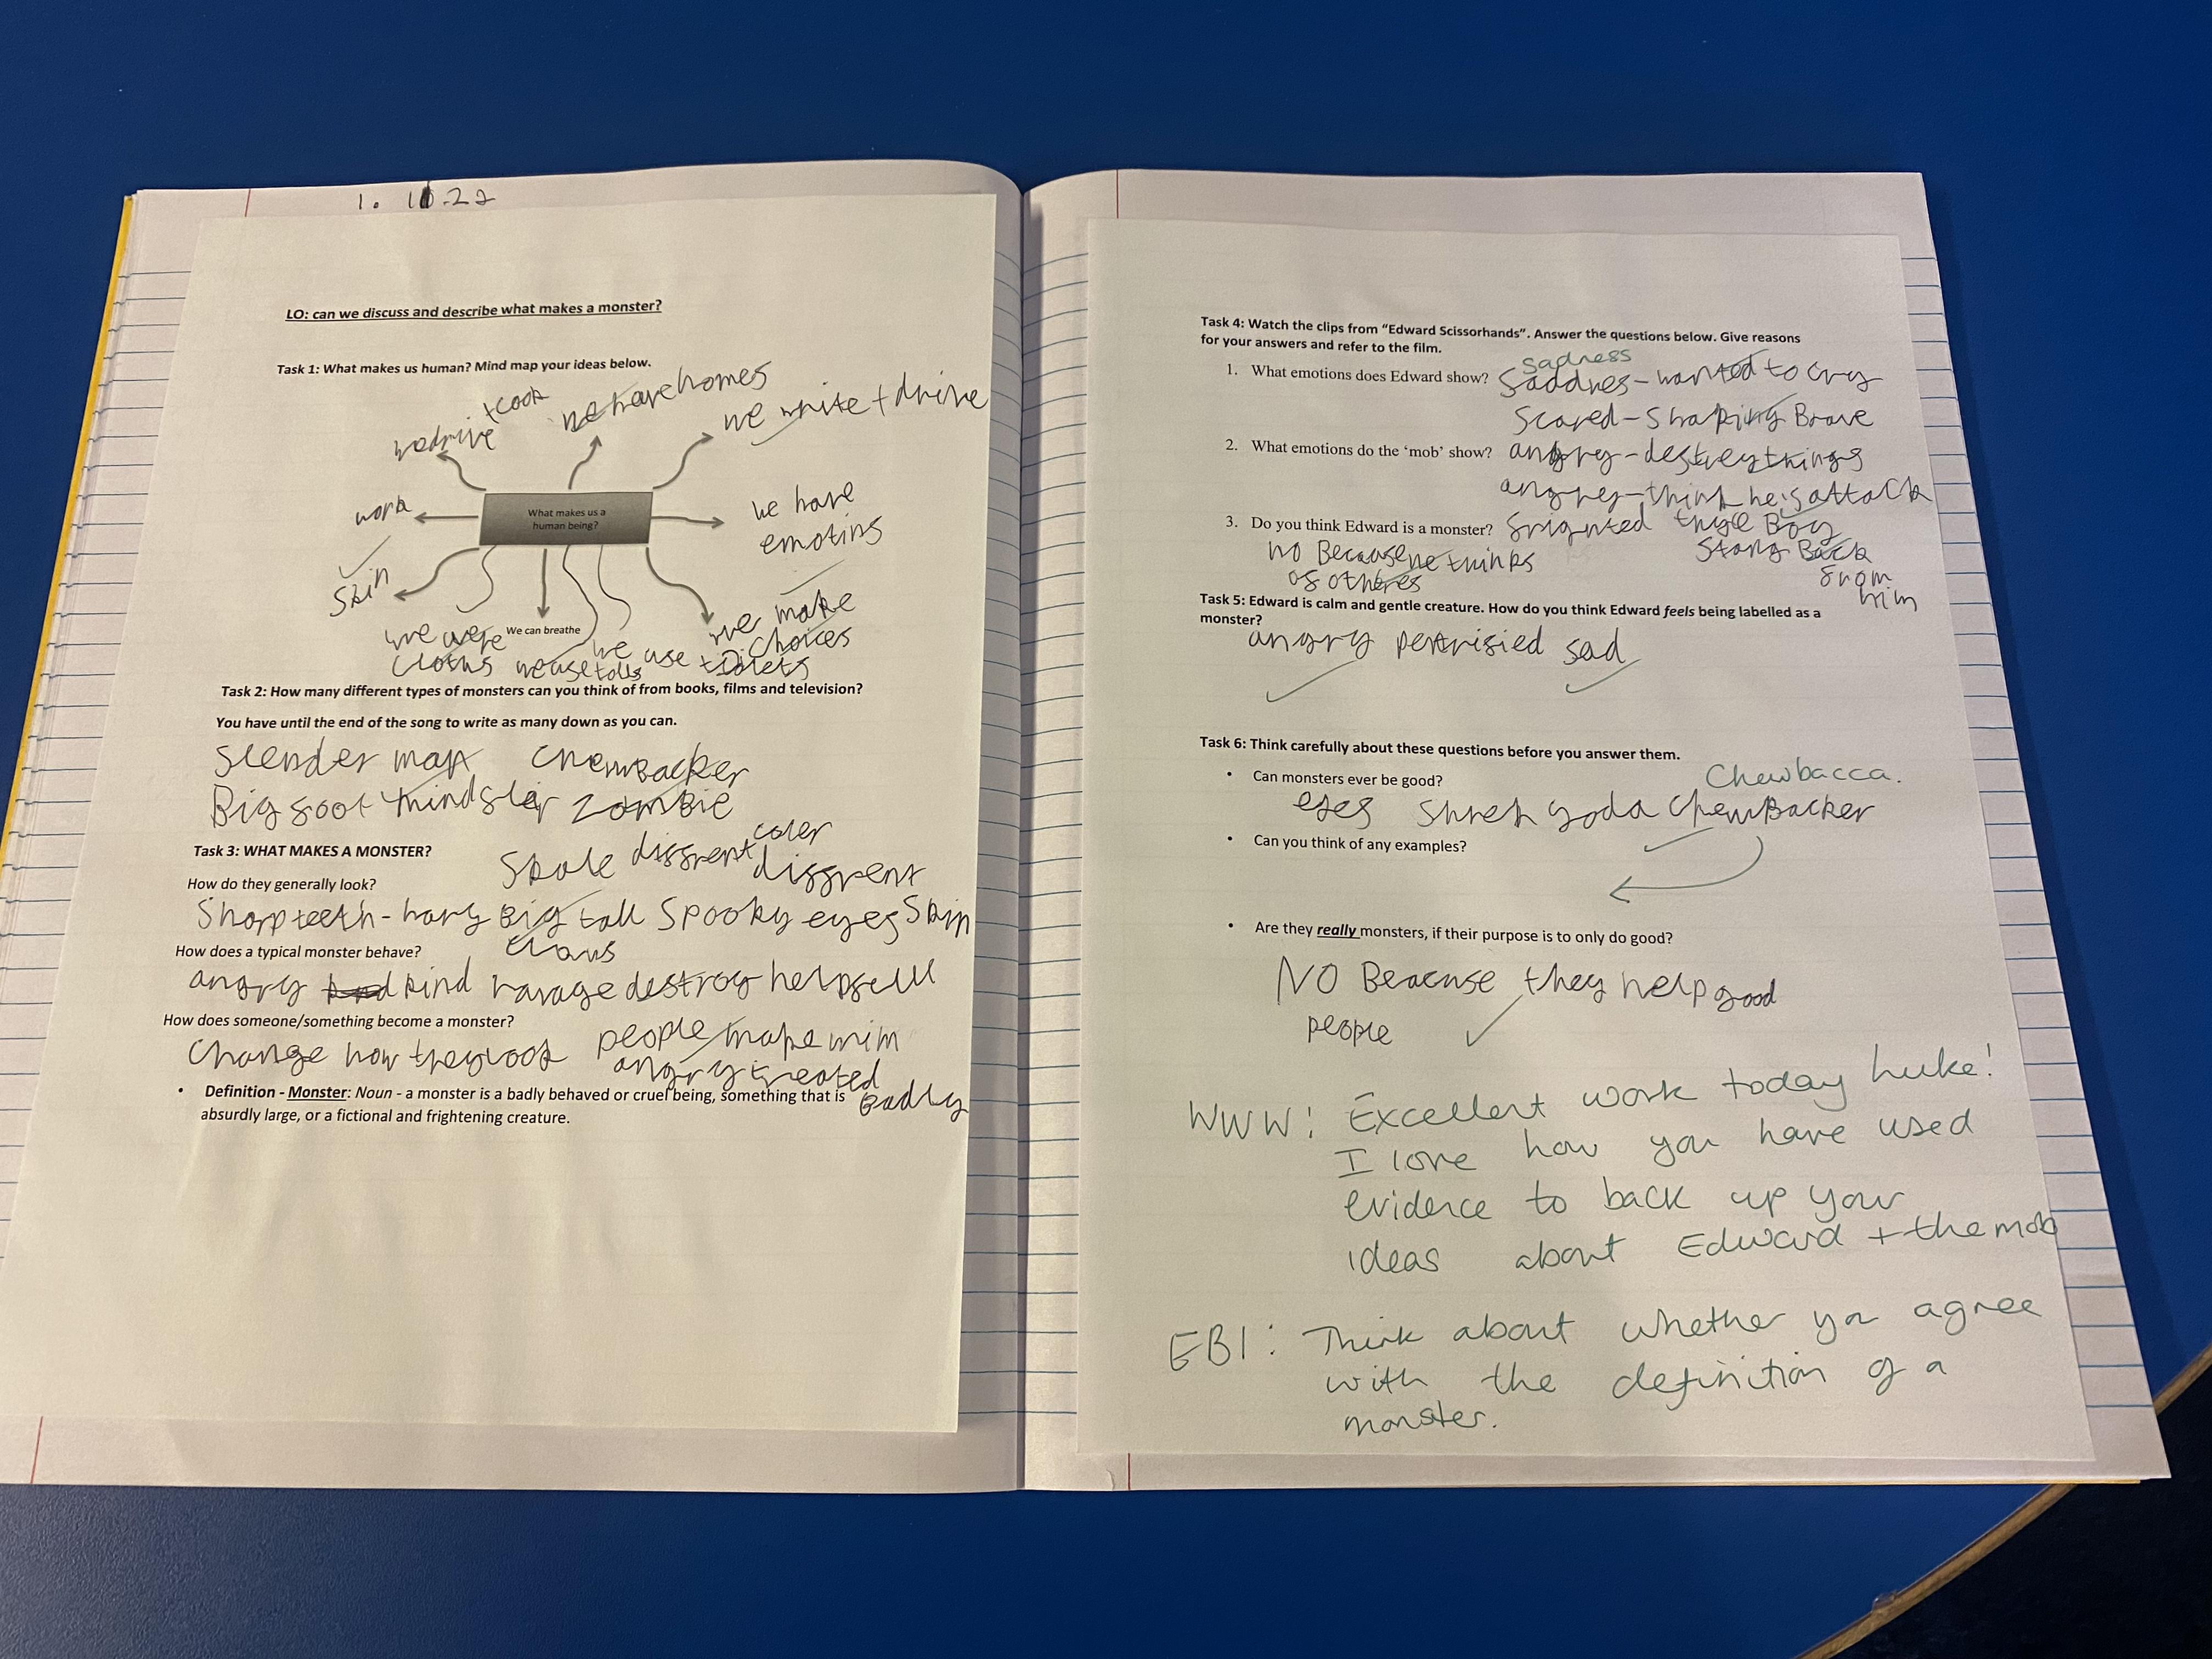 1. 10.22
LO: can we discuss and describe what makes a monster?
Task 1: What makes us human? Mind map your ideas below.
we drive + cook
we have homes
we write + drive
work
What makes us a
human being?
we have
emotins
skin
we were
cloths
We can breathe
we use tolls
we use toilets
we make
choices
Task 2: How many different types of monsters can you think of from books, films and television?
You have until the end of the song to write as many down as you can.
Slender man chewBacker
Big foot zombie
Task 3: WHAT MAKES A MONSTER?
diffrent coler
diffrent
How do they generally look?
Sharp teeth - hary Big tall Spooky eyes Skin
claws
How does a typical monster behave?
angry kind ravage destroy
How does someone/something become a monster?
Change how they look people make him
angry treated
badly
• Definition - Monster: Noun - a monster is a badly behaved or cruel being, something that is
absurdly large, or a fictional and frightening creature.
Task 4: Watch the clips from “Edward Scissorhands”. Answer the questions below. Give reasons
for your answers and refer to the film.
sadness
1. What emotions does Edward show? Saddnes - wanted to cry
Scared - Shaking Brave
2. What emotions do the ‘mob’ show? angry - destrey things
angrey - think he is attack
3. Do you think Edward is a monster? frighted Boy
no Because he thinks
of otheres
Back
from
him
Task 5: Edward is calm and gentle creature. How do you think Edward feels being labelled as a
monster?
angry sad
Task 6: Think carefully about these questions before you answer them.
• Can monsters ever be good?
Chewbacca.
Shrek yoda chewBacker
• Can you think of any examples?
• Are they really monsters, if their purpose is to only do good?
NO they help good
people
WWW: Excellent work today Luke!
I love how you have used
evidence to back up your
ideas about Edward + the mob
EBI: Think about whether you agree
with the definition of a
monster.